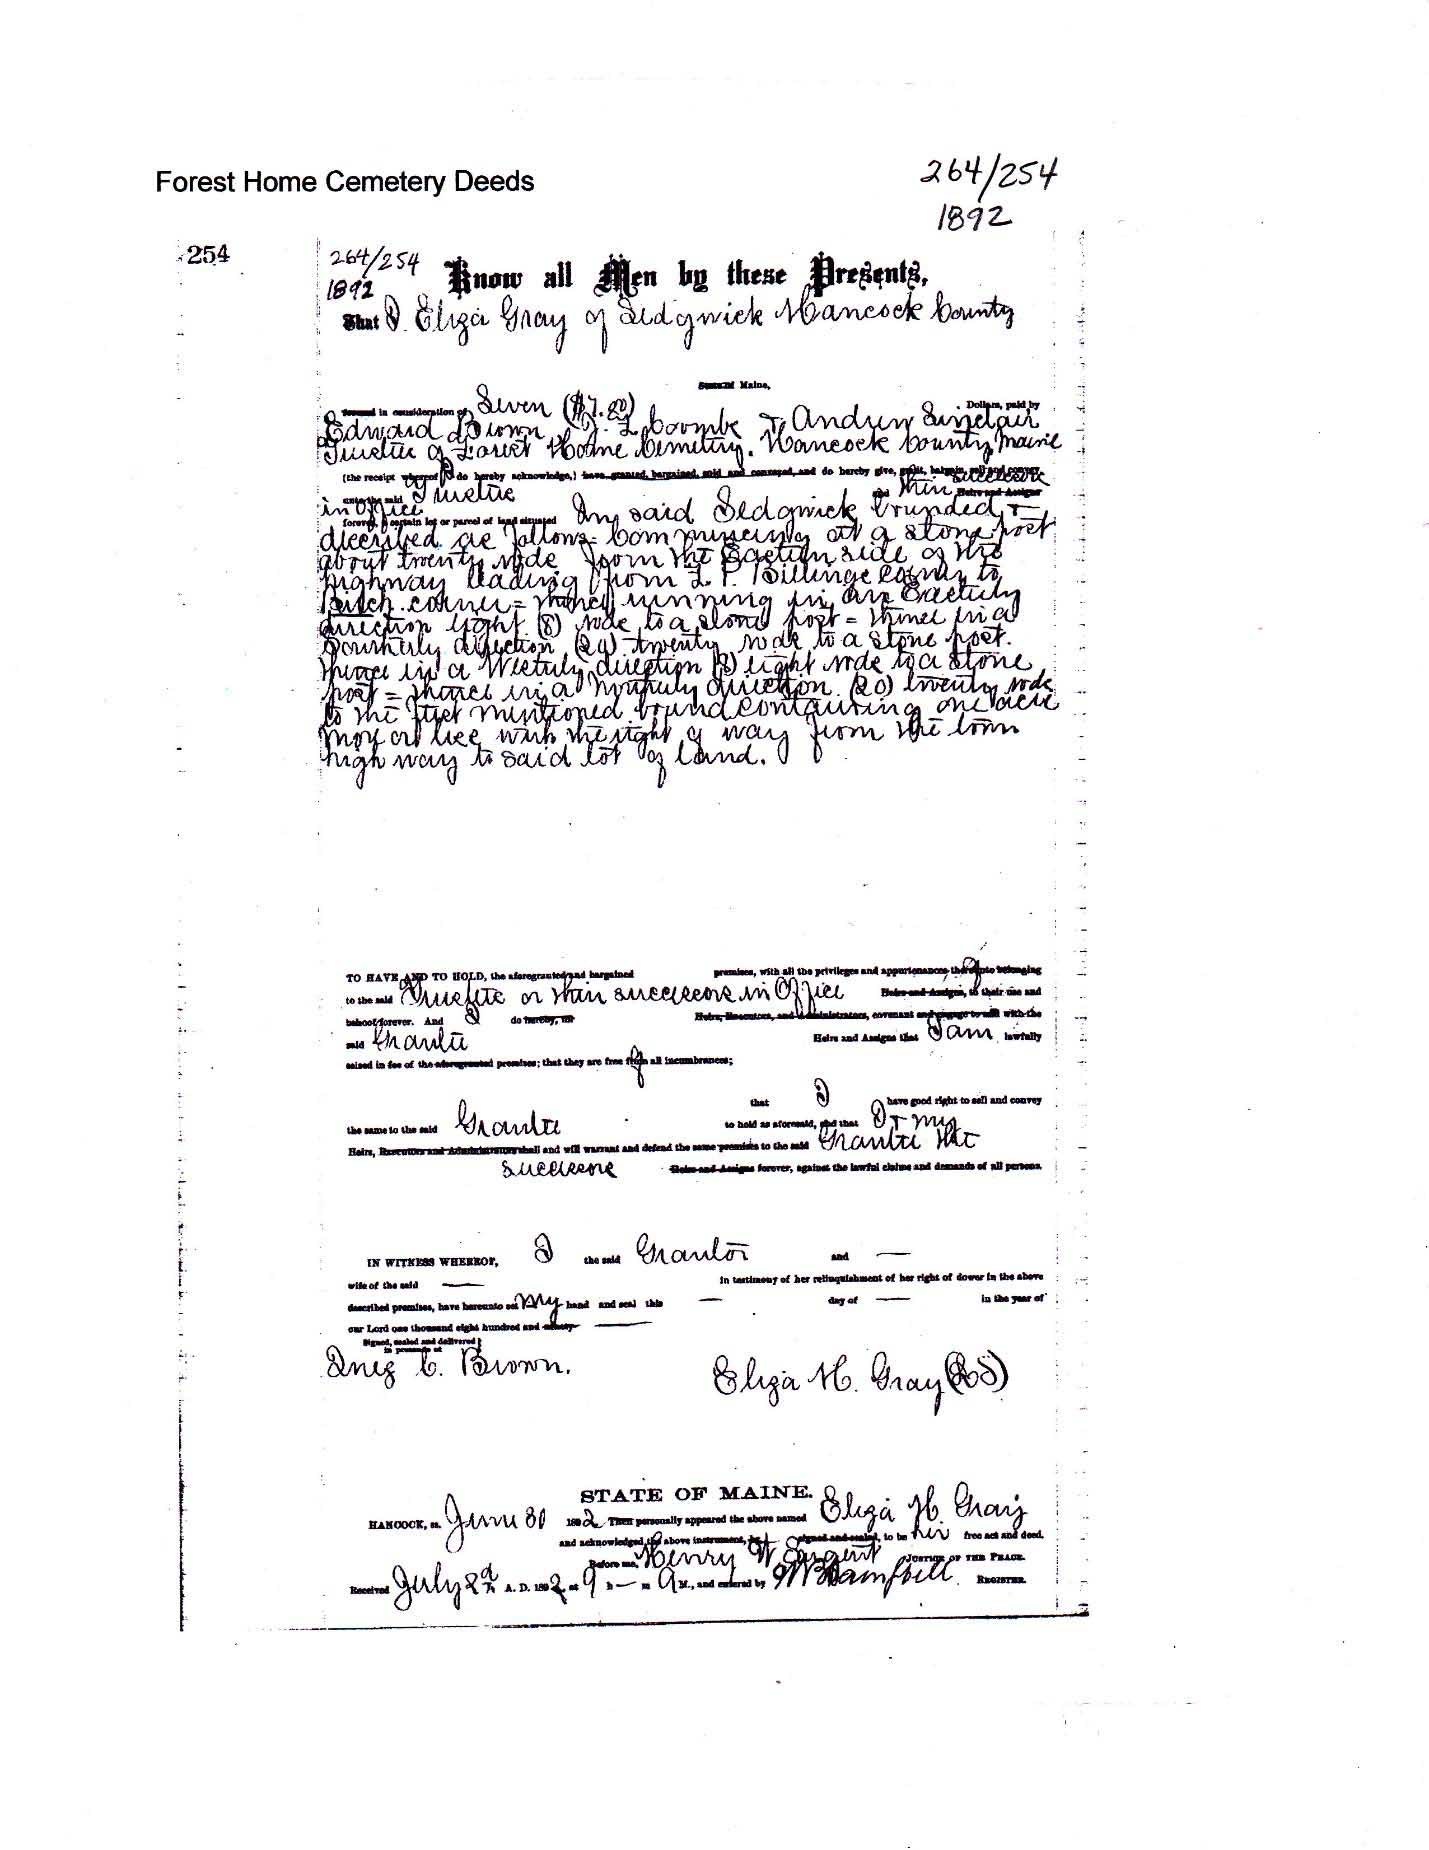 Forest Home Cemetery Deeds
264/254
1892
254
264/254
1892
Know all Men by these Presents,
That I Eliza Gray of Sedgwick Hancock County
State of Maine,
in consideration of Seven ($7.00) Dollars, paid by
Edward Brown, L Coombs & Andrew Sinclair
Trustees of Forest Home Cemetery. Hancock County, Maine
(the receipt whereof I do hereby acknowledge,) have granted, bargained, sold and conveyed, and do hereby give, grant, bargain, sell and convey
unto the said Trustees and their successors
in office Heirs and Assigns
forever, a certain lot or parcel of land situated In said Sedgwick bounded &
described as follows = Commencing at a stone post
about twenty rods from the Eastern side of the
highway leading from L. P. Billings corner to
corner = thence running in an Easterly
direction eight (8) rods to a stone post = thence in a
Southerly direction (20) twenty rods to a stone post.
thence in a Westerly direction (8) eight rods to a stone
post = thence in a Northerly direction (20) twenty rods
to the first mentioned bound containing one acre
more or less with the right of way from the town
high way to said lot of land.
TO HAVE AND TO HOLD, the aforegranted and bargained premises, with all the privileges and appurtenances thereunto belonging
to the said Trustees or their successors in Office Heirs and Assigns, to their use and
behoof forever. And I do hereby, for Heirs, Executors, and Administrators, covenant and engage to and with the
said Grantee Heirs and Assigns that I am lawfully
seized in fee of the aforegranted premises; that they are free of all incumbrances;
that I have good right to sell and convey
the same to the said Grantee to hold as aforesaid, and that I & my
Heirs, Executors and Administrators shall and will warrant and defend the same premises to the said Grantee the
successors Heirs and Assigns forever, against the lawful claims and demands of all persons.
IN WITNESS WHEREOF, I the said Grantor and —
wife of the said — in testimony of her relinquishment of her right of dower in the above
described premises, have hereunto set my hand and seal this — day of — in the year of
our Lord one thousand eight hundred and ninety —
Signed, sealed and delivered
in presence of
Inez C. Brown.
Eliza H. Gray (LS)
STATE OF MAINE.
HANCOCK, ss. June 30 1892 Then personally appeared the above named Eliza H. Gray
and acknowledged the above instrument, by signed and sealed, to be her free act and deed.
Before me, Henry W Sargent JUSTICE OF THE PEACE.
Received July 2d A. D. 1892 at 9 h — m A M., and entered by Campbell REGISTER.